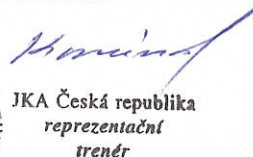 JKA Česká republika
reprezentační
trenér